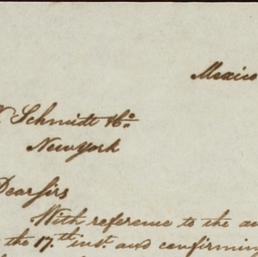 Mexico
Schmidt & Co
New York
Dear sirs
With reference to the
the 17th inst. and confirming